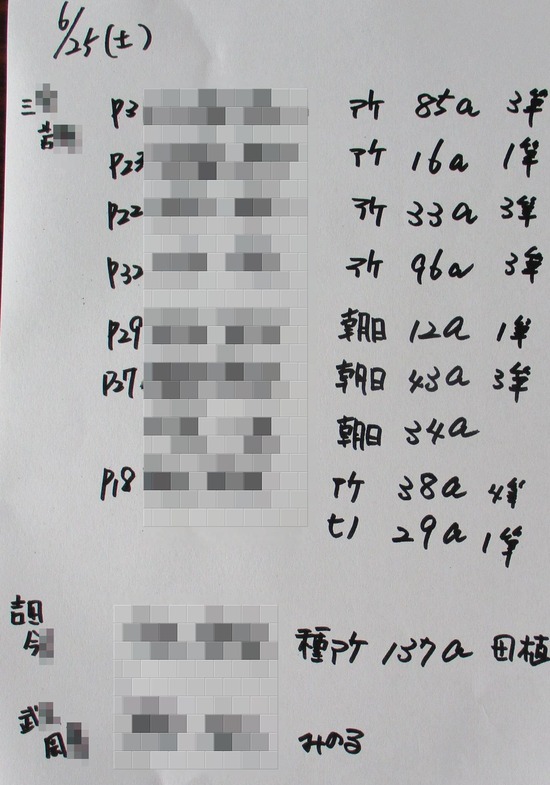 6/25(土)
三 P3 アケ 85a 3筆
苦
P23 アケ 16a 1筆
P22 アケ 33a 3筆
P32 アケ 96a 3筆
P29 朝日 12a 1筆
P27 朝日 43a 3筆
朝日 34a
P18 アケ 38a 4筆
ヒノ 29a 1筆
吉田
今 種アケ 137a 田植
武
岡 みのる